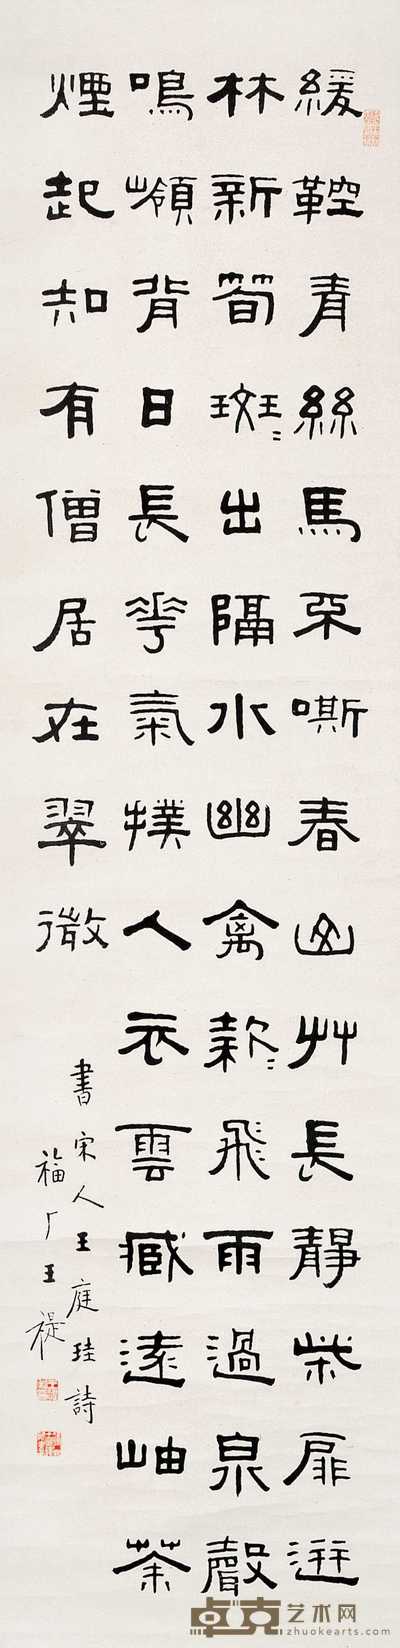 緩鞚青絲馬不嘶春山艸長靜柴扉迸
林新筍斑〻出隔水幽禽款〻飛雨過泉聲
鳴嶺背日長花氣撲人衣雲藏遠岫茶
煙起知有僧居在翠微
書宋人王庭珪詩
福厂王禔
卓克艺术网
zhuokearts.com